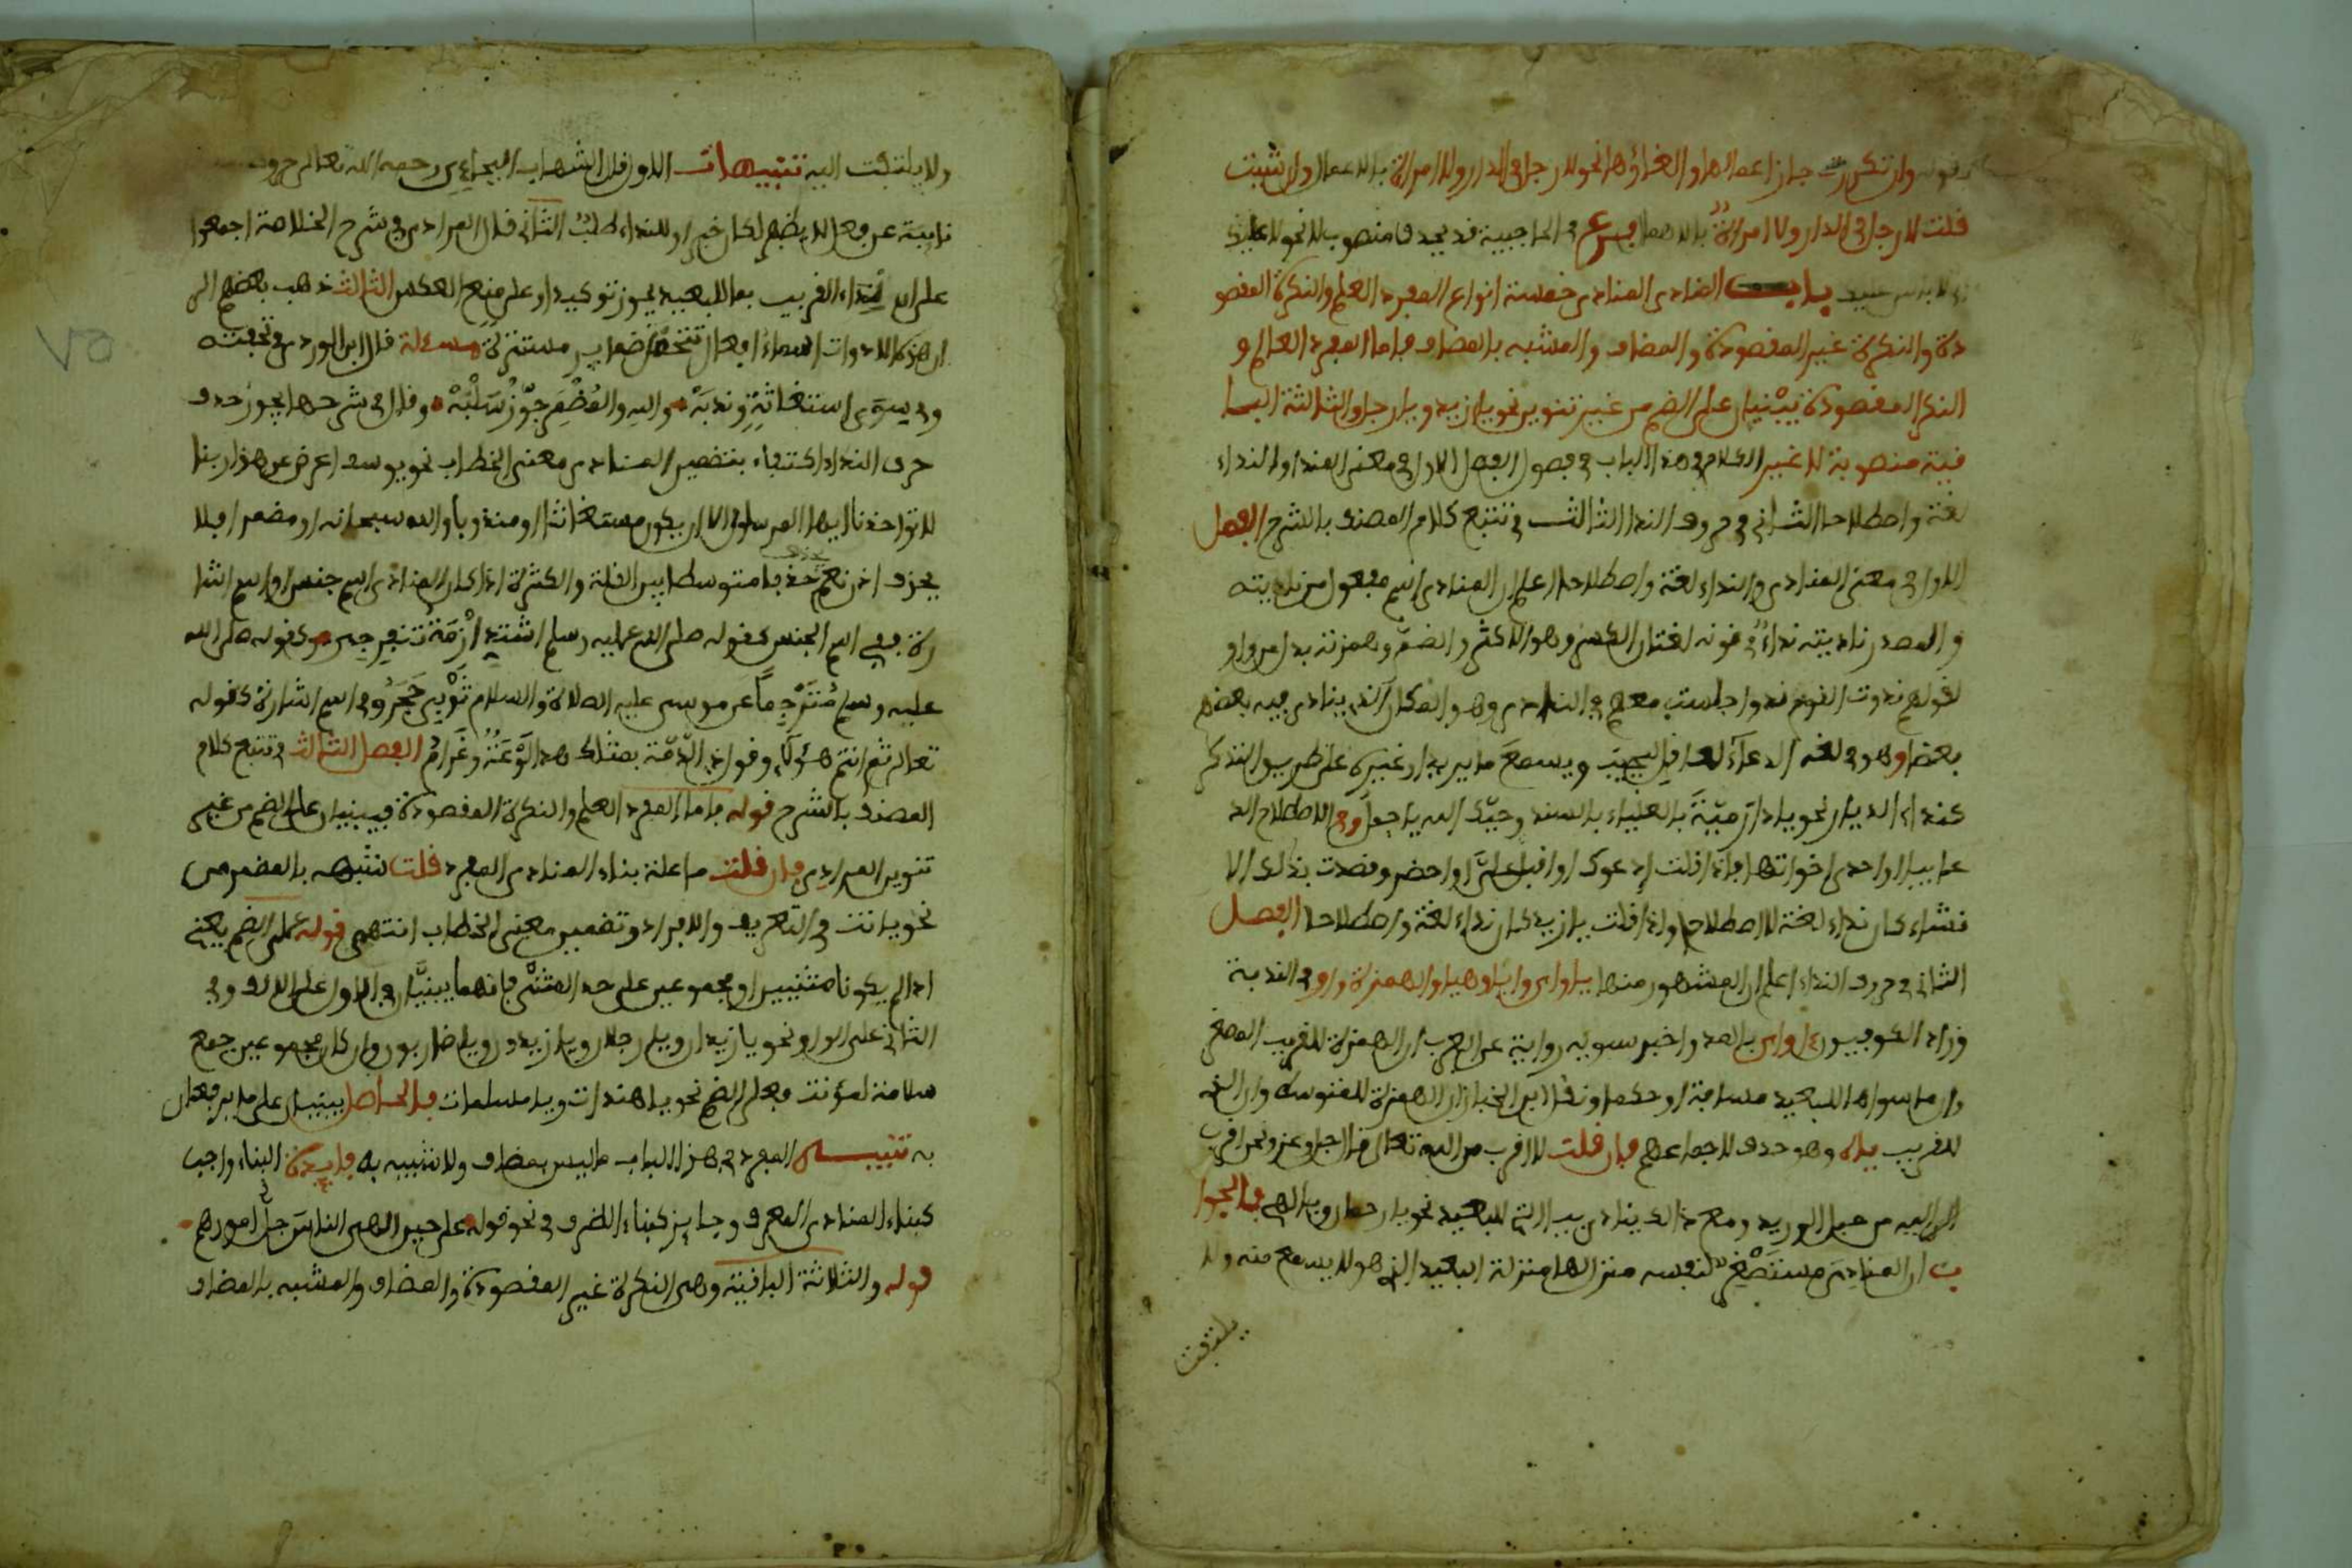 قوله وان تكررت جاز اعمالها والغاؤها نحو لا رجل في الدار ولا امراة بالاعمال وان شيت
قلت لا رجل في الدار ولا امراة بالاهمال فرع في الحاجبية قد يحذف منصوب لا نحو لا عليك
باب المنادى المنادى خمسة انواع المفرد العلم والنكرة المقصو
دة والنكرة غير المقصودة والمضاف والمشبه بالمضاف فاما المفرد العلم و
النكرة المقصودة يبنيان على الضم من غير تنوين نحو يا زيد ويا رجل والثلاثة البا
قية منصوبة لا غير الكلام في هذا الباب في فصول الفصل الاول في معنى المنادى والنداء
لغة واصطلاحا الثاني في حروف النداء الثالث في تتبع كلام المصنف بالشرح الفصل
الاول في معنى المنادى والنداء لغة واصطلاحا اعلم ان المنادى اسم مفعول من ناديته
والمصدر ناديته نداء وفي نونه لغتان الكسر وهو الاكثر والضم وهمزته بدل من واو
لقولهم ندوت القوم ندوا جلست معهم في النادي وهو المكان الذي ينادي فيه بعضهم
بعضا وهو في لغة الدعاء لعاقل ليجيب ويسمع ما يريد او غيره على طريق التذكر
كنداء الديار نحو يا دار مية بالعلياء بالسند وحبك اليه يا جعل وفي الاصطلاح الد
عا بيا او احدى اخواتها فاذا قلت ادعوك او اقبل علي او احضر وقصدت بذلك الا
نشاء كان نداء لغة لا اصطلاحا واذا قلت يا زيد كان نداء لغة واصطلاحا الفصل
الثاني في حروف النداء اعلم ان المشهور منها يا واي وايا وهيا والهمزة ووا في الندبة
وزاد الكوفيون ءا وءاي بالمد واخبر سبويه رواية عن العرب ان الهمزة للقريب المصغي
وان ما سواها للبعيد مسافة او حكما ونقل ابن الخباز ان الهمزة للمتوسط وان الذي
للقريب يا وهو خرق لاجماعهم فان قلت لا اقرب من الله تعالى قال جل وعز ونحن اقرب
اليه من حبل الوريد ومع ذلك ينادى بيا التي للبعيد نحو يا رحمان ويا الهي فالجوا
ب ان المنادي مستصغر لنفسه منزل لها منزلة البعيد الذي هو لا يسمع منه ولا
يلتفت
ولا يلتفت اليه تنبيهات الاول قال الشهاب البجاءي رحمه الله تعالى حروف
نايبة عن فعل لا يظهر لكل خبر او للنداء طلب الثاني قال المرادي في شرح الخلاصة اجمعوا
على ان نداء القريب بما للبعيد يجوز توكيدا وعلى منع العكس الثالث ذهب بعضهم الى
ان هذه الادوات اسماء افعال تتحمل ضماير مستترة مسئلة قال ابن الوردي في تحفته
وفي سوى استغاثة وندبة واليه والمضمر جوز سلبه وقال في شرحها يجوز حذف
حرف النداء اكتفاء بتضمين المنادى معنى الخطاب نحو يوسف اعرض عن هذا ربنا
لا تواخذنا ايها المرسلون الا ان يكون مستغاثا او مندوبا والله سبحانه او مضمرا فلا
يحذف اذن نعم حذف يا متوسط بين القلة والكثرة اذا كان المنادى اسم جنس او اسم اشا
رة ففي اسم الجنس كقوله صلى الله عليه وسلم اشتدي ازمة تنفرجي وكقوله صلى الله
عليه وسلم مترجما عن موسى عليه الصلاة والسلام ثوبي حجر وفي اسم الشارة كقوله
تعالى ثم انتم هؤلاء وقول ذي الرمة بمثلك هذا لوعة وغرام الفصل الثالث في تتبع كلام
المصنف بالشرح قوله فاما المفرد العلم والنكرة المقصودة فيبنيان على الضم من غير
تنوين المرادي فان قلت ما علة بناء المنادى المفرد قلت شبهه بالمضمر من
نحو يا انت في التعريف والافراد وتضمين معنى الخطاب انتهى قوله على الضم يعني
اذا لم يكونا مثنيين او مجموعين على حد المثنى فانهما يبنيان في الاول على الالف وفي
الثاني على الواو نحو يا زيدان ويا رجلان ويا زيدون ويا ضاربون وان كان مجموعين جمع
سلامة لمؤنث فعلى الضم نحو يا هندات ويا مسلمات فالحاصل يبنيان على ما يرفعان
به تنبيه المفرد في هذا الباب ما ليس بمضاف ولا شبيه به فايدة البناء واجب
كبناء المنادى المعرف وجايز كبناء الظرف في نحو قوله على حين الهى الناس جل امورهم
قوله والثلاثة الباقية وهي النكرة غير المقصودة والمضاف والمشبه بالمضاف
٧٥